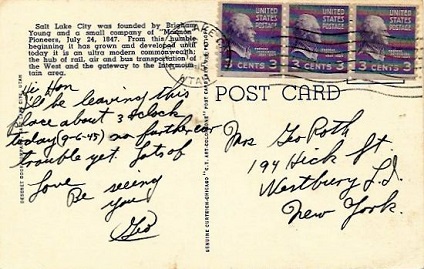 Salt Lake City was founded by Brigham
Young and a small company of "Mormon"
Pioneers, July 24, 1847. From this humble
beginning it has grown and developed until
today it is an ultra modern commonwealth;
the hub of rail, air and bus transportation of
the West and the gateway to the Intermoun-
tain area.
Hi Hon
I'll be leaving this
place about 3 o'clock
today (9-6-45) no further car
trouble yet. Lots of
Love Be seeing
you
Geo
UNITED STATES POSTAGE
3 CENTS 3
UNITED STATES POSTAGE
3 CENTS 3
UNITED STATES POSTAGE
3 CENTS 3
LAKE
UTAH
POST CARD
Mrs Geo Roth
194 Hick St.
Westbury L.I.
New York.
GENUINE CURTEICH-CHICAGO "C.T. ART-COLORTONE" POST CARD